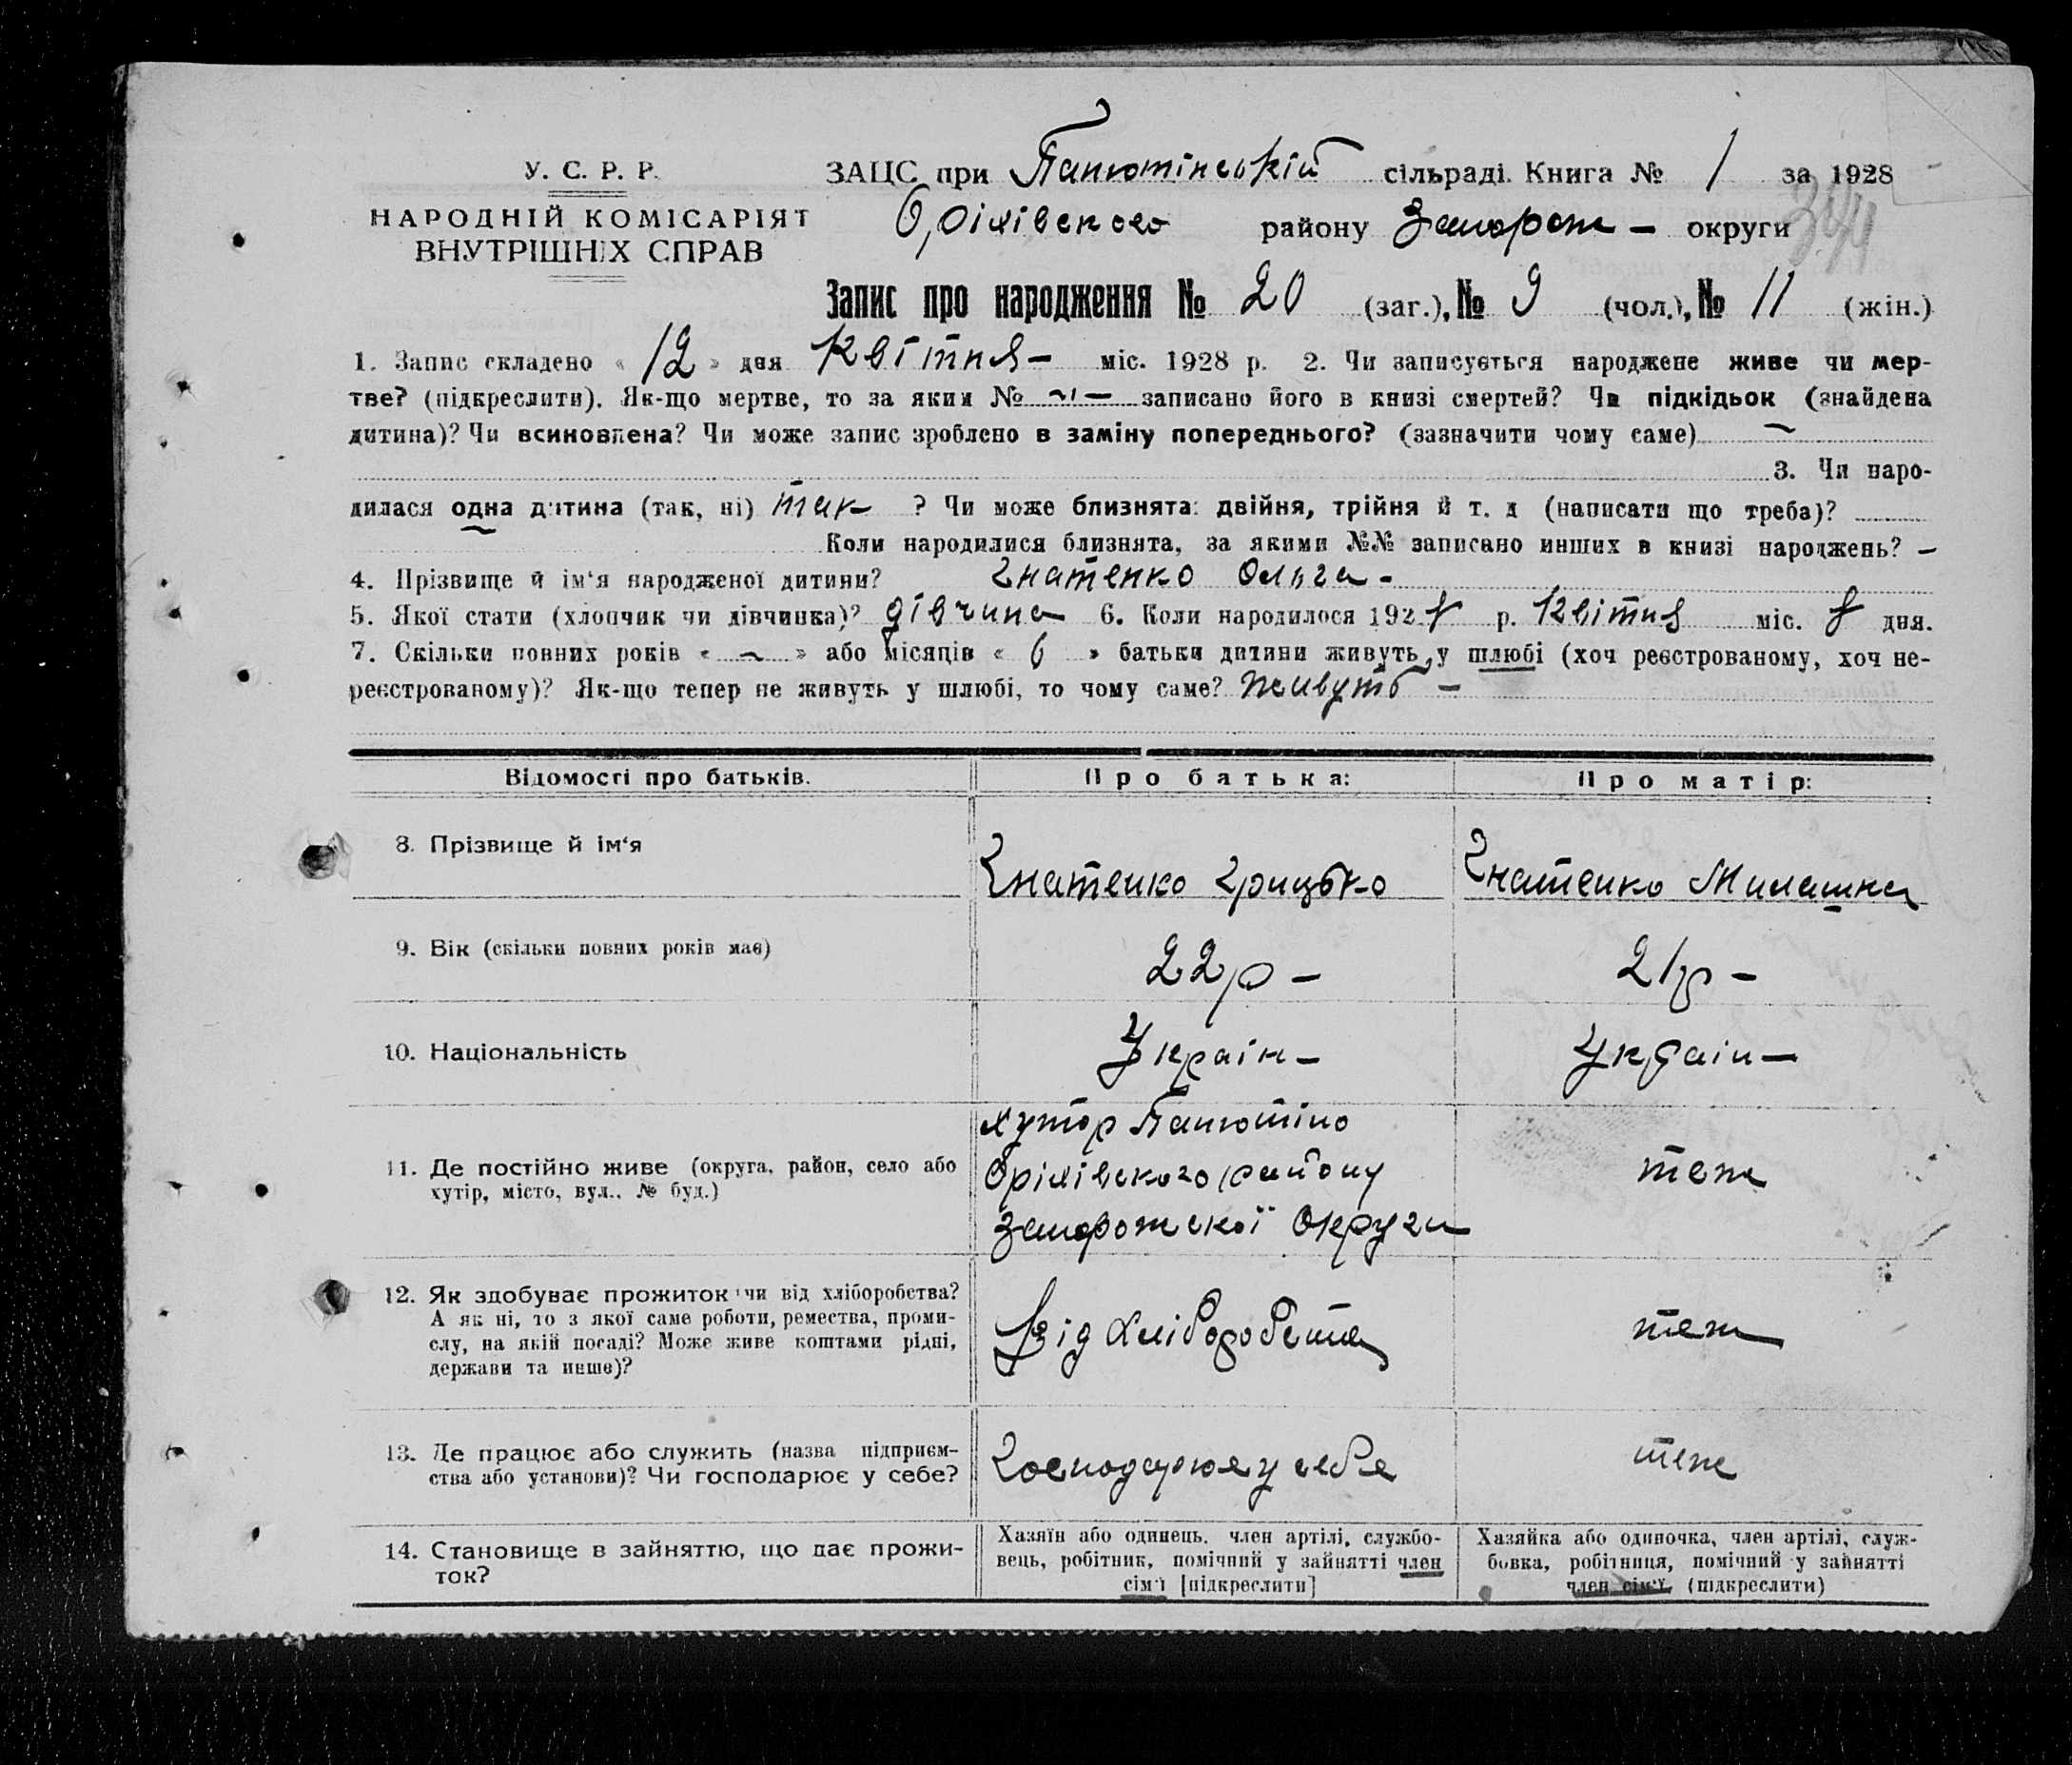 У. С. Р. Р.
НАРОДНІЙ КОМІСАРІЯТ
ВНУТРІШНІХ СПРАВ
ЗАЦС при Панютінській сільраді. Книга № 1 за 1928
Оріхівського району Запорож – округи
344
Запис про народження № 20 (заг.), № 9 (чол.), № 11 (жін.)
1. Запис складено « 12 » дня Квітня – міс. 1928 р. 2. Чи записується народжене живе чи мер-
тве? (підкреслити). Як-що мертве, то за яким № ~ – записано його в книзі смертей? Чи підкідьок (знайдена
дитина)? Чи всиновлена? Чи може запис зроблено в заміну попереднього? (зазначити чому саме) ~
3. Чи наро-
дилася одна дитина (так, ні) так ? Чи може близнята: двійня, трійня й т. д (написати що треба)?
Коли народилися близнята, за якими №№ записано инших в книзі народжень? –
4. Прізвище й ім'я народженої дитини? Гнатенко Ольга –
5. Якої стати (хлопчик чи дівчинка)? дівчина 6. Коли народилося 1928 р. Квітня міс. 8 дня.
7. Скільки повних років « ~ » або місяців « 6 » батьки дитини живуть у шлюбі (хоч реєстрованому, хоч не-
реєстрованому)? Як-що тепер не живуть у шлюбі, то чому саме? Живуть –
Відомості про батьків. Про батька: Про матір:
8. Прізвище й ім'я Гнатенко Грицько Гнатенко Милашка
9. Вік (скільки повних років має) 22 р – 21 р –
10. Національність Україн – Україн –
хутор Панютіно
11. Де постійно живе (округа, район, село або Оріхівского району теж
хутір, місто, вул., № буд.)
Запорожскої Округи
12. Як здобуває прожиток: чи від хліборобства?
А як ні, то з якої саме роботи, ремества, проми-
слу, на якій посаді? Може живе коштами рідні, Від Хліборобства теж
держави та инше)?
13. Де працює або служить (назва підприєм- Господарює у себе теж
ства або установи)? Чи господарює у себе?
14. Становище в зайняттю, що дає прожи-
ток?
Хазяїн або одинець, член артілі, службо-
вець, робітник, помічний у зайнятті член
сім'ї [підкреслити]
Хазяйка або одиночка, член артілі, служ-
бовка, робітниця, помічний у зайнятті
член сім'ї, (підкреслити)